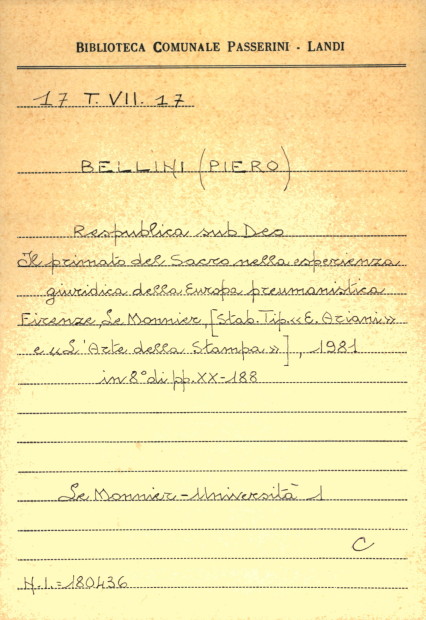 BIBLIOTECA COMUNALE PASSERINI - LANDI
17 T. VII. 17
BELLINI (PIERO)
Respublica sub Deo
Il primato del Sacro nella esperienza
giuridica della Europa preumanistica
Firenze, Le Monnier, [Stab. Tip. «E. Ariani»
e «L'Arte della Stampa»], 1981
in 8° di pp. XX-188
Le Monnier - Università 1
C
N.I. = 180436